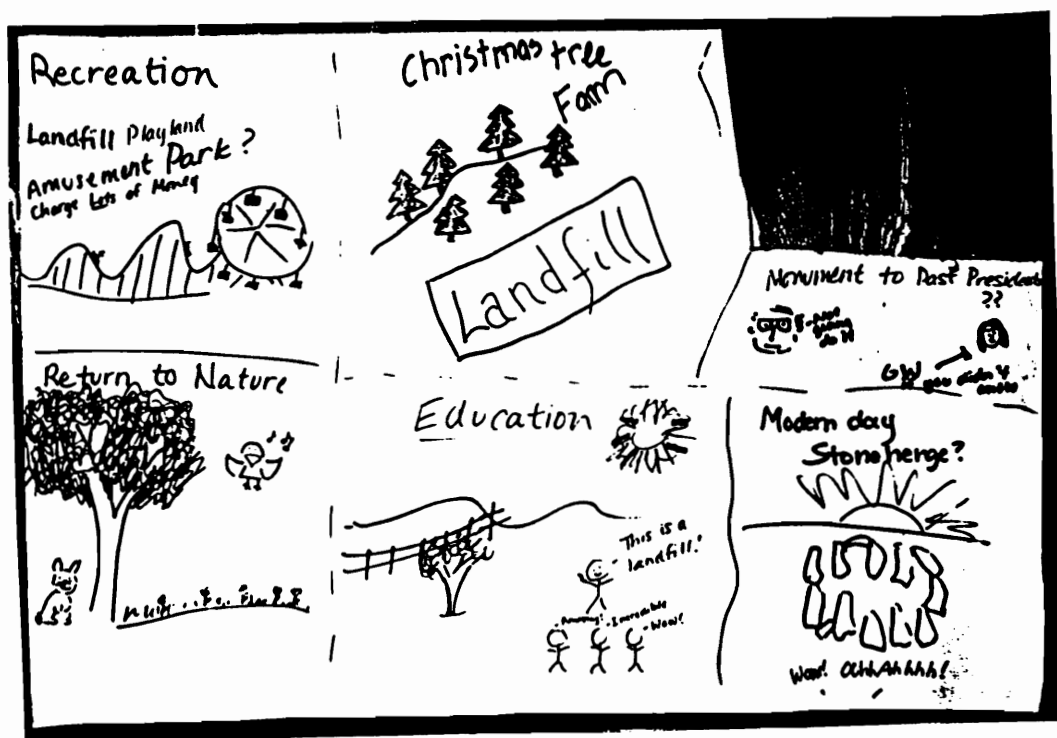 Recreation
Landfill Playland
Amusement Park?
Charge Lots of Money
Christmas tree
Farm
Landfill
Monument to Past Presidents
??
- Not
gonna
do it
GW
you didn't
Return to Nature
Education
This is a
landfill!
Amazing!
- Incredible
- Wow!
Modern day
Stonehenge?
Wow! OhhAhhhhh!